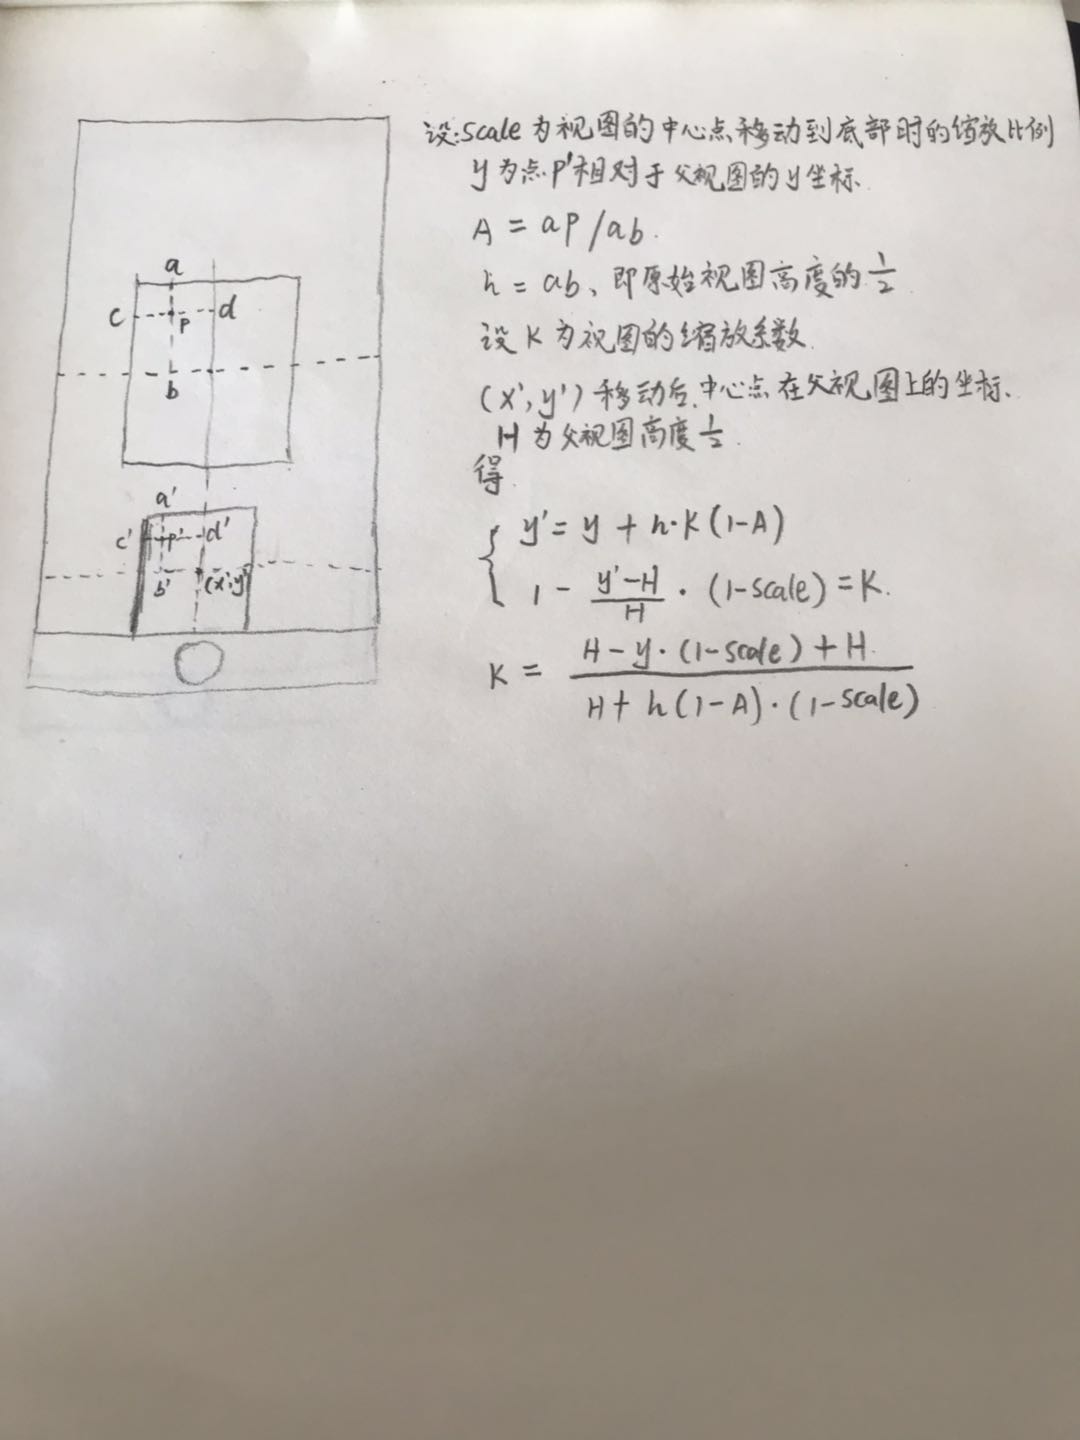 设:scale为视图的中心点移动到底部时的缩放比例
y为点p'相对于父视图的y坐标.
A = ap/ab.
h = ab、即原始视图高度的1/2
设K为视图的缩放系数.
(x',y')移动后,中心点在父视图上的坐标、
H为父视图高度1/2.
得.
{ y' = y + h·K(1-A)
1 - (y'-H)/H · (1-scale) = K.
K = (H - y·(1-scale) + H.)/(H + h(1-A)·(1-scale))
a
c
p
d
b
a'
c'
p'
d'
b'
(x',y')